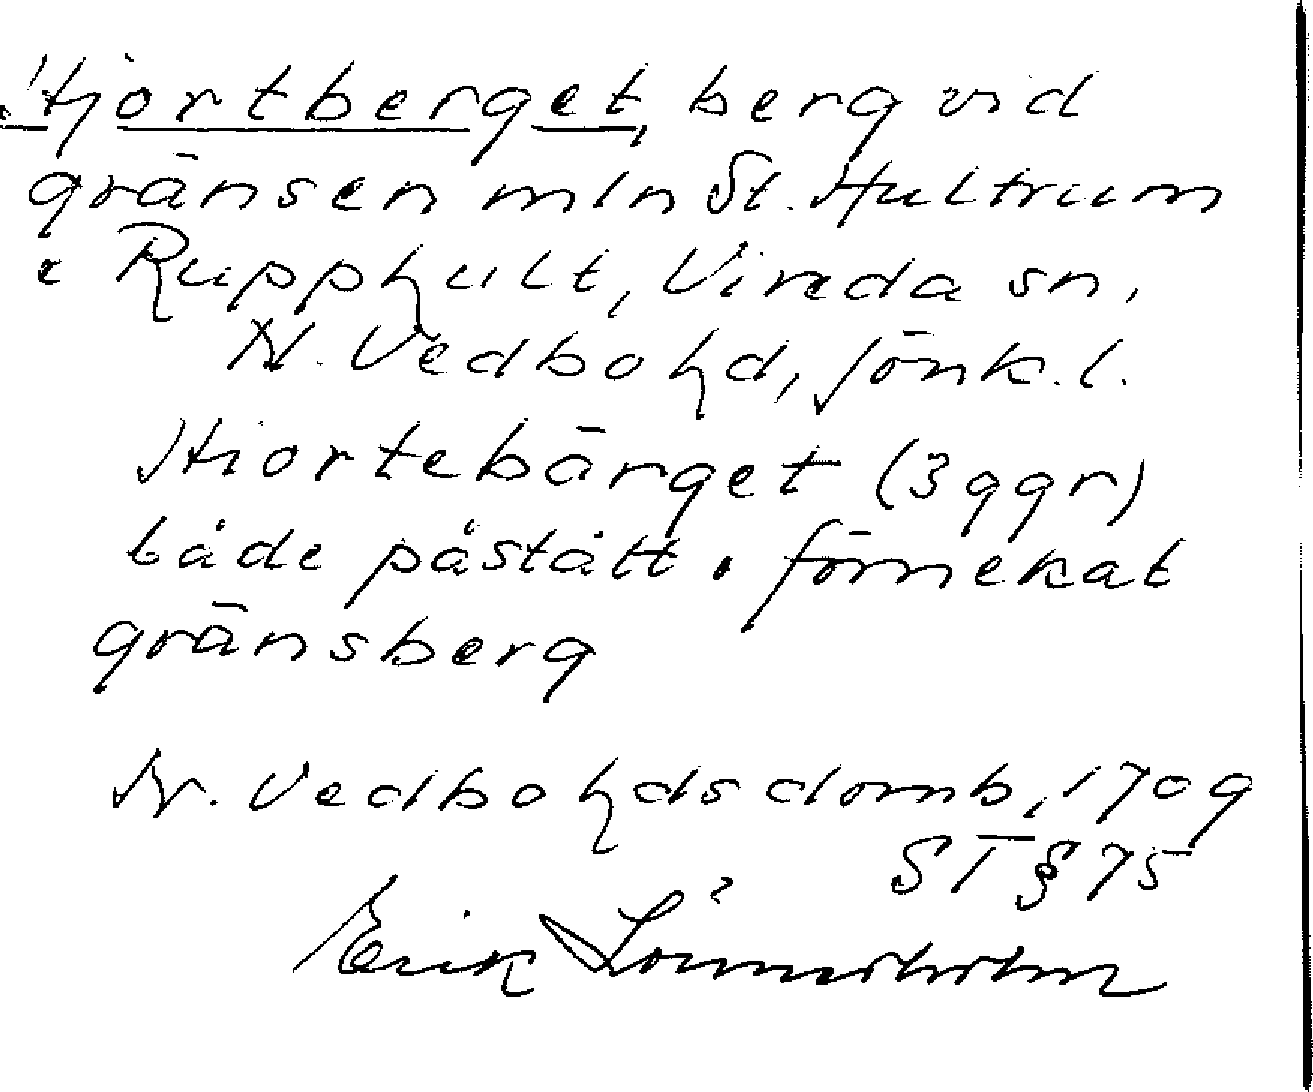 Hjortberget, berg vid
gränsen mln St. Hultrum
i Rupphult, Vireda sn,
N. Vedbo hd, Jönk. l.
Hiortebärget (3 ggr)
både påstått o. förnekat
gränsberg
N. Vedbo hds domb, 1709
ST § 75
Erik